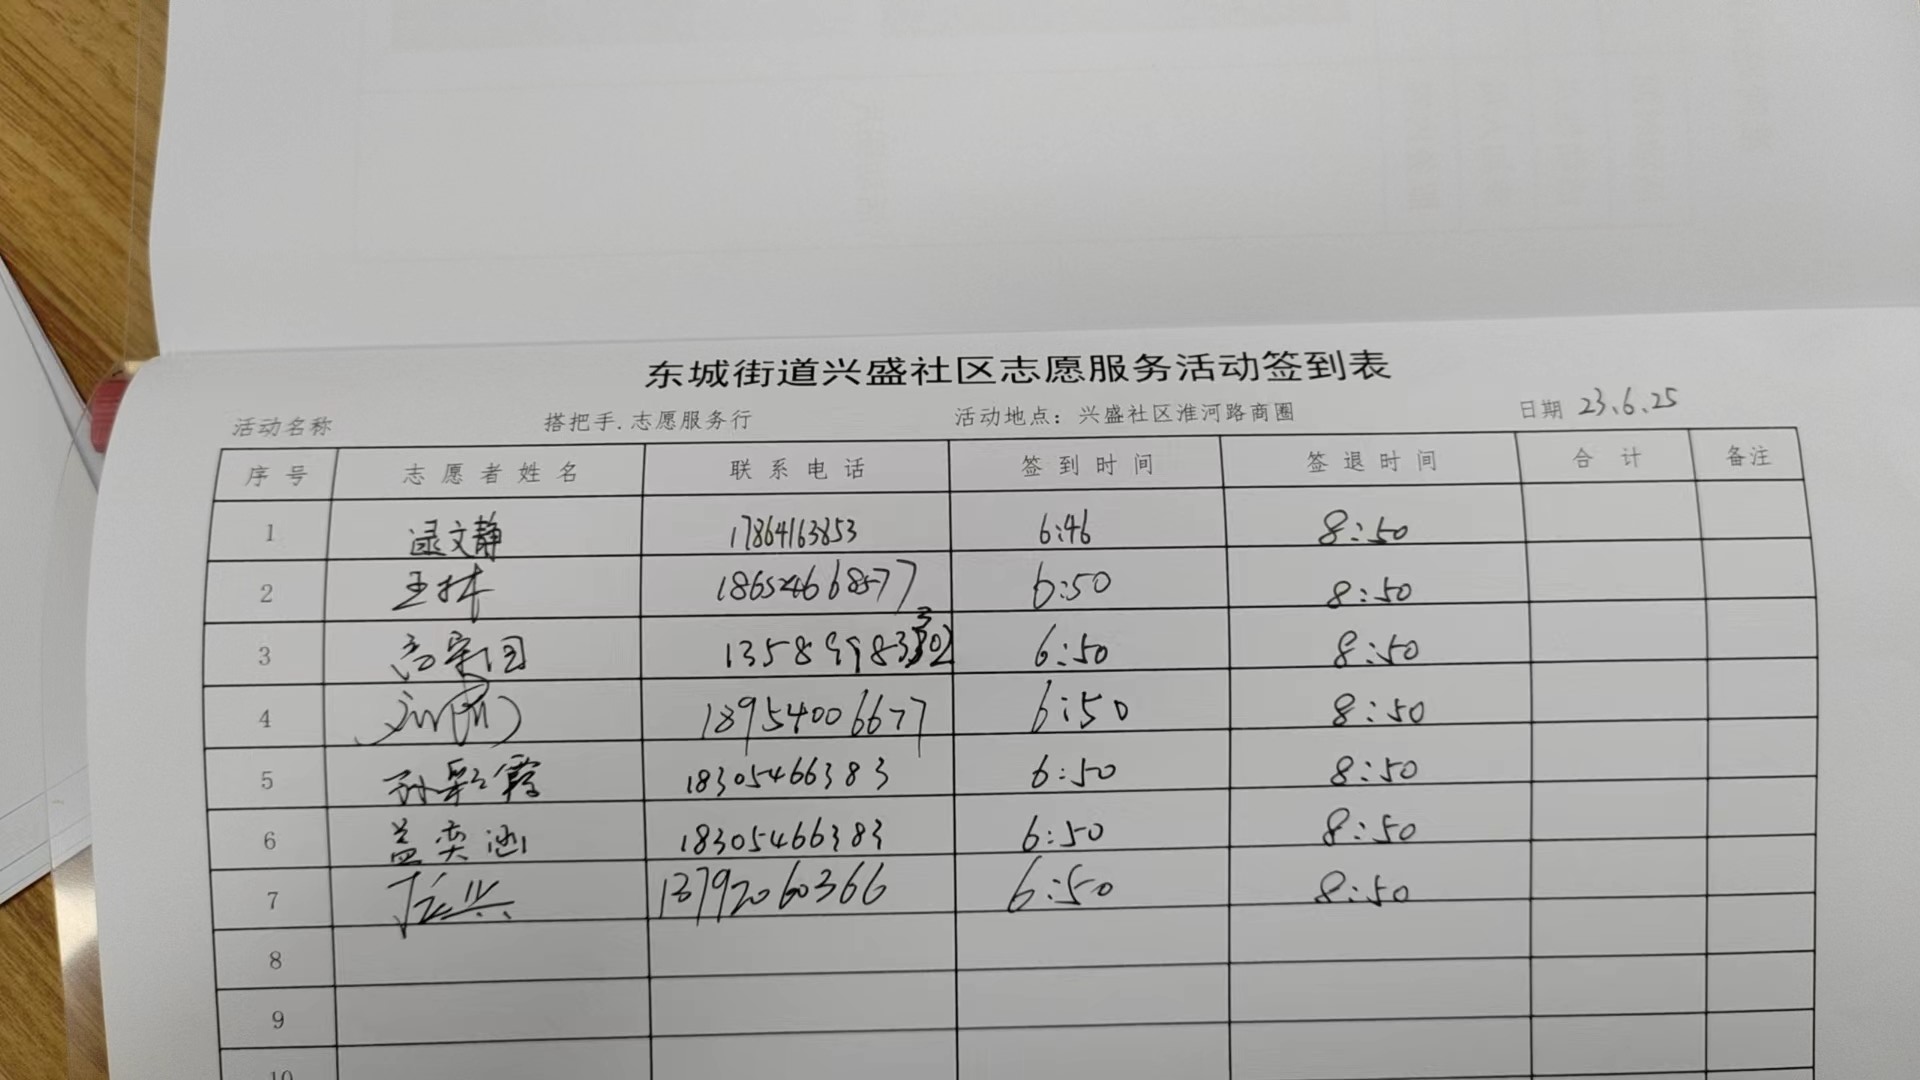 东城街道兴盛社区志愿服务活动签到表
活动名称 搭把手.志愿服务行 活动地点：兴盛社区淮河路商圈 日期 23.6.25
序号 志愿者姓名 联系电话 签到时间 签退时间 合计 备注
1 逯文静 17864163853 6:46 8:50
2 王林 186524668577 6:50 8:50
3 6:50 8:50
4 18954006677 6:50 8:50
5 孙彩霞 18305466383 6:50 8:50
6 盖奕涵 18305466383 6:50 8:50
7 13792060366 6:50 8:50
8
9
10